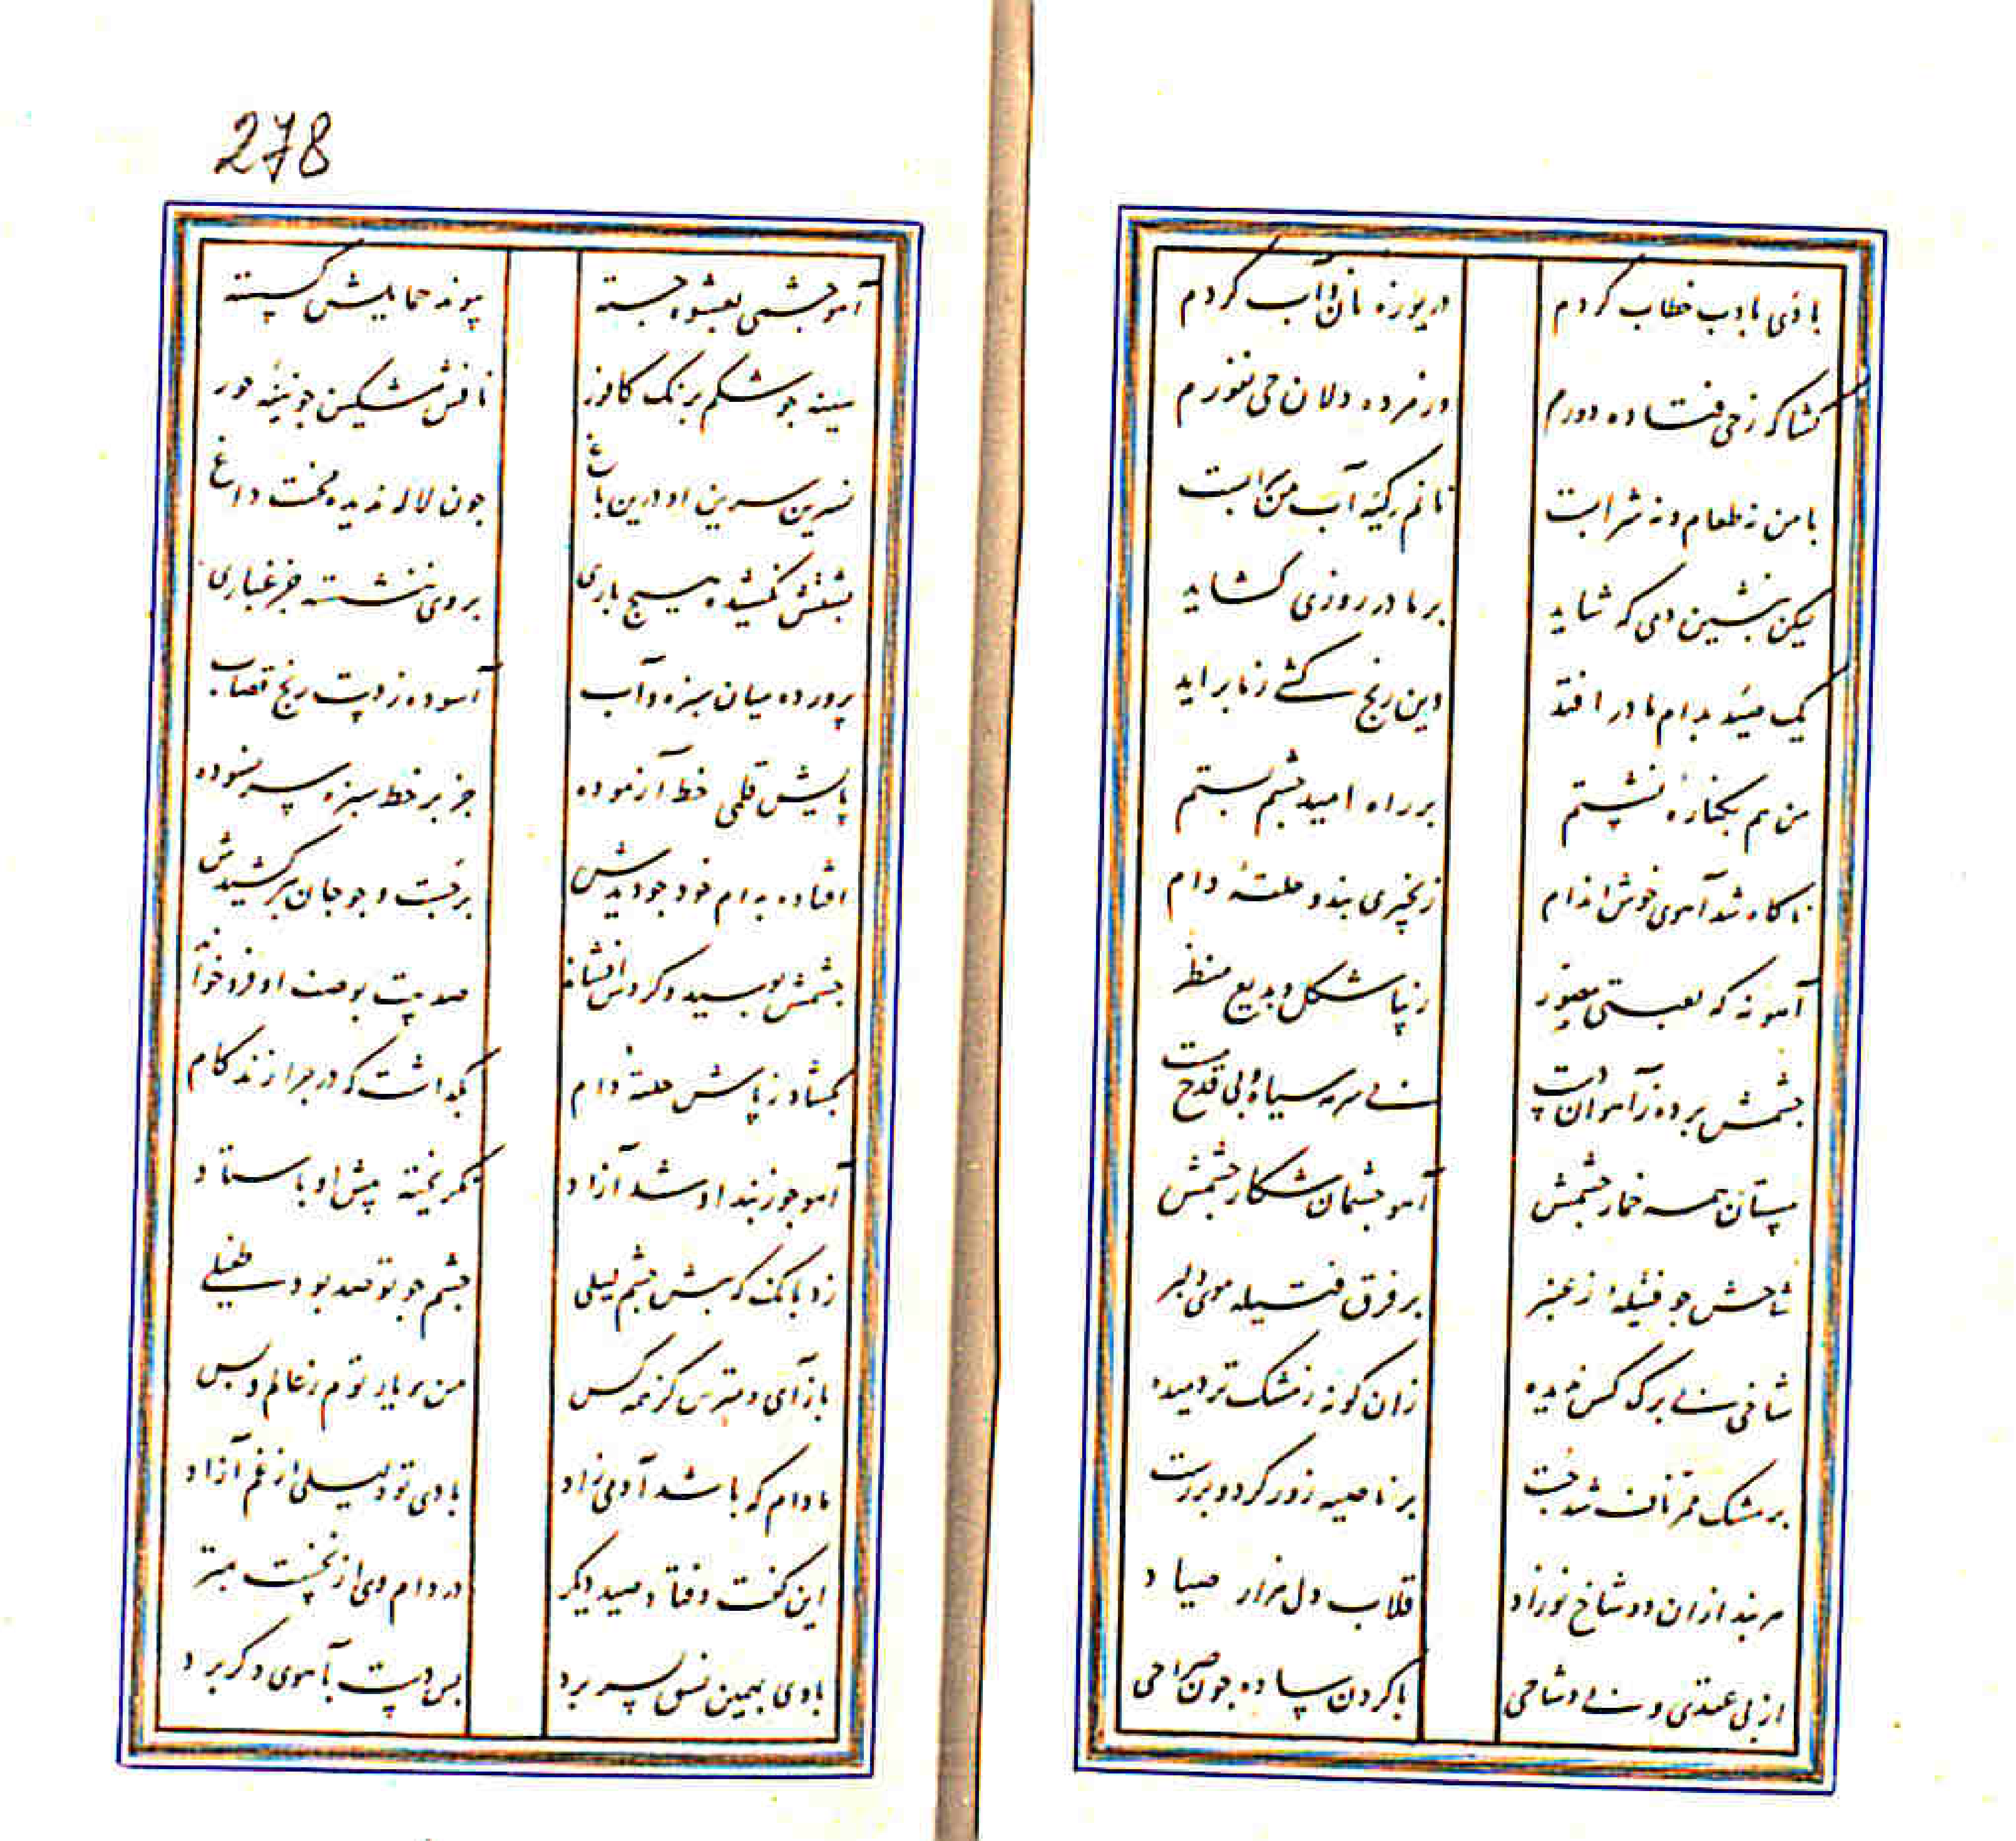 با وی بادب خطاب کردم    دریوزه نان و آب کردم
گفتا که زحی فتاده دورم    وز مرده دلان حی نفورم
با من نه طعام و نه شرابست    نانم جگر آب من سرابست
لیکن بنشین دمی که شاید    بر ما در روزی گشاید
یک صید بدام ما در افتد    وین رنج کشی ز ما براید
من هم بکناره نشستم    بر راه امید چشم بستم
ناکاه شد آهوی خوش اندام    زنجیری بند و حلقه دام
آهو نه که لعبتی مصور    زیبا شکل و بدیع منظر
چشمش برده ز آهوان دست    نی سرمه سیاه و بی قدح مست
مستان همه خمار چشمش    آهو چشمان شکار چشمش
شاخش جو فتیله از عنبر    بر فرق فتیله موی دلبر
شاخی بی برک کس ندیده    زان کونه ز مشک تر دمیده
بر مشک تر ناف شد جست    بر ناصیه زور کرد و بر رست
هر بند ازان دو شاخ نوزاد    قلاب دل هزار صیاد
از بی عقدی و بی وشاحی    با کردن ساده جون صراحی
278
آهو چشمی بعشوه جسته    پیوند حمایلش کسسته
سینه جو شکم برنک کافور    نافش مشکین جو نیفه حور
نسرین سرین او درین باغ    جون لاله ندیده محنت داغ
پشتش نکشیده هیچ باری    بر وی ننشسته جز غباری
پرورده میان سبزه و آب    آسوده ز دست رنج قصاب
پایش قلمی خط آزموده    جز بر خط سبزه سر نسوده
افتاده بدام خود جو دیدش    برجست و جو جان ببر کشیدش
چشمش بوسید و کردش افشاند    صد بیت بوصف او فرو خواند
بکشاد ز پاش حلقه دام    بکذاشت که در جرا زند کام
آهو جو ز بند او شد آزاد    نکریخته پیش او باستاد
زد بانک که پیش چشم لیلی    چشم جو تو صد بود طفیلی
باز آی و مترس کز همه کس    من بر یاد توم ز عالم و بس
مادام که باشد آدمی زاد    بادی تو و لیلی از غم آزاد
این کفت و فتاد صید دیکر    در دام وی از نخست بهتر
با وی بهمین نسق بسر برد    پس دست بآهوی دکر برد